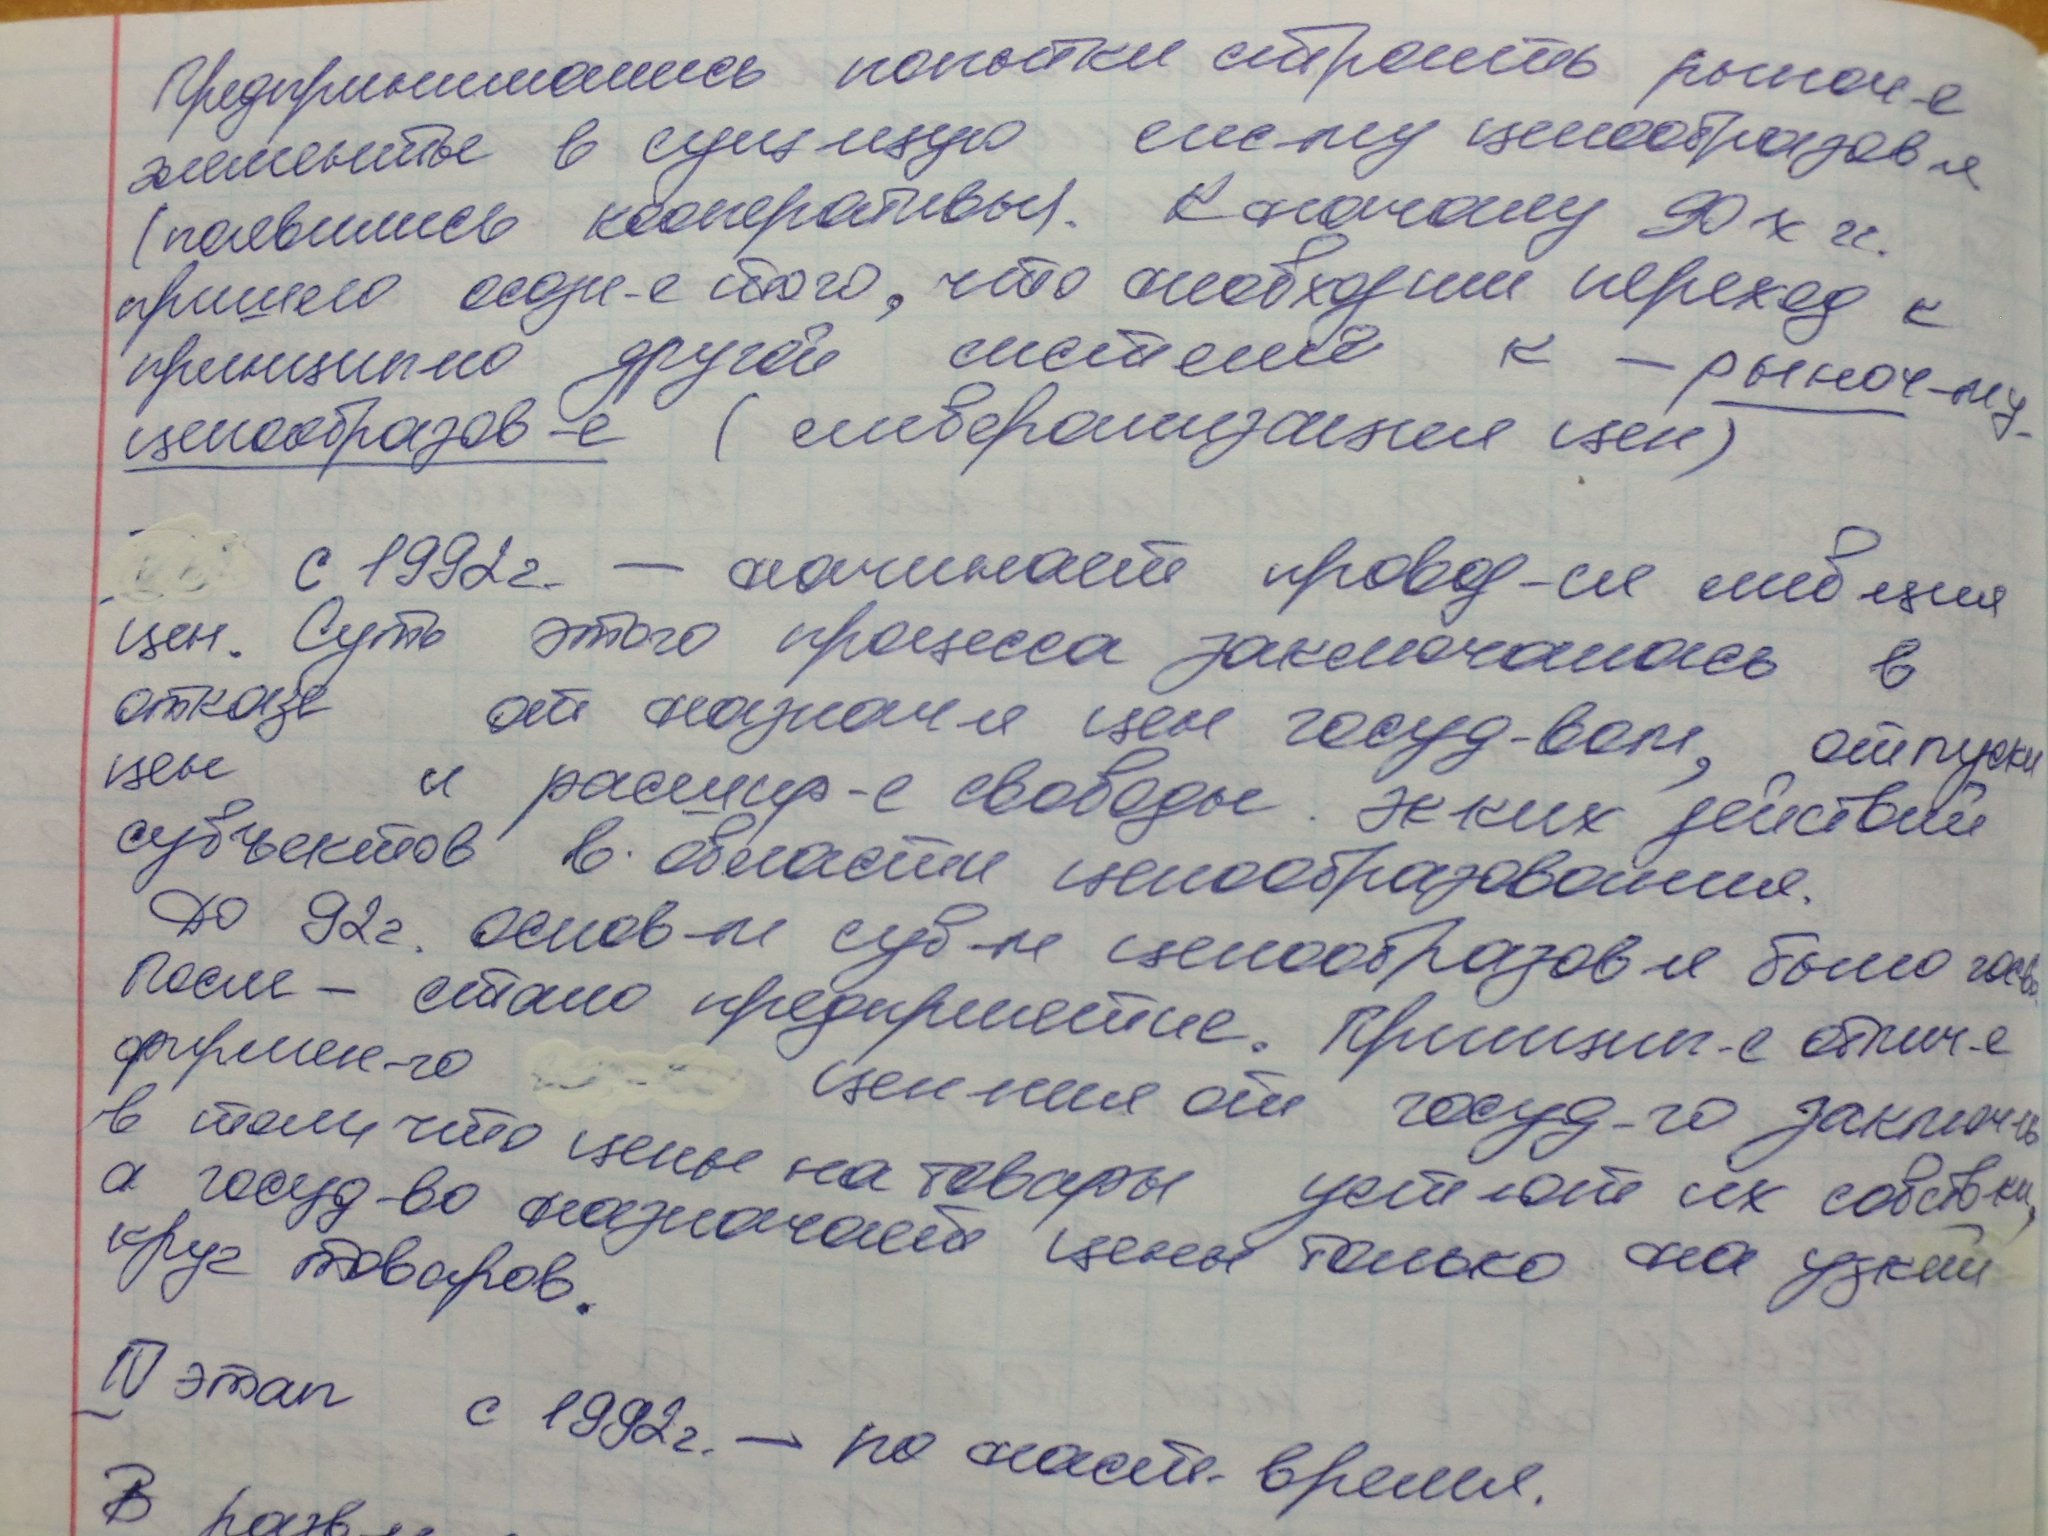 Предпринимались попытки строить рыноч-е
элементы в сущ щую сис му ценообразов я
(появились кооперативы). К началу 90 х гг.
пришло осозн-е того, что необходим переход к
принципно другой системе к - рыноч-му
ценообразов-е (либерализация цен)
с 1992г. — начинает провод-ся либ ция
цен. Суть этого процесса заключалась в
отказе от назнач я цен госуд-вом, отпуски
цен и расшир-е свободы эк ких действий
субъектов в области ценообразования.
До 92г. основ-м суб-м ценообразов я было госво.
После - стало предприятие. Принцип-е отлич-е
фирмен-го цен ния от госуд-го заключ-сь
в том, что цены на товары уст ют их собств-ки,
а госуд-во назначает цены только на узкий
круг товаров.
IV этап с 1992г. — по наст. время.
В разв